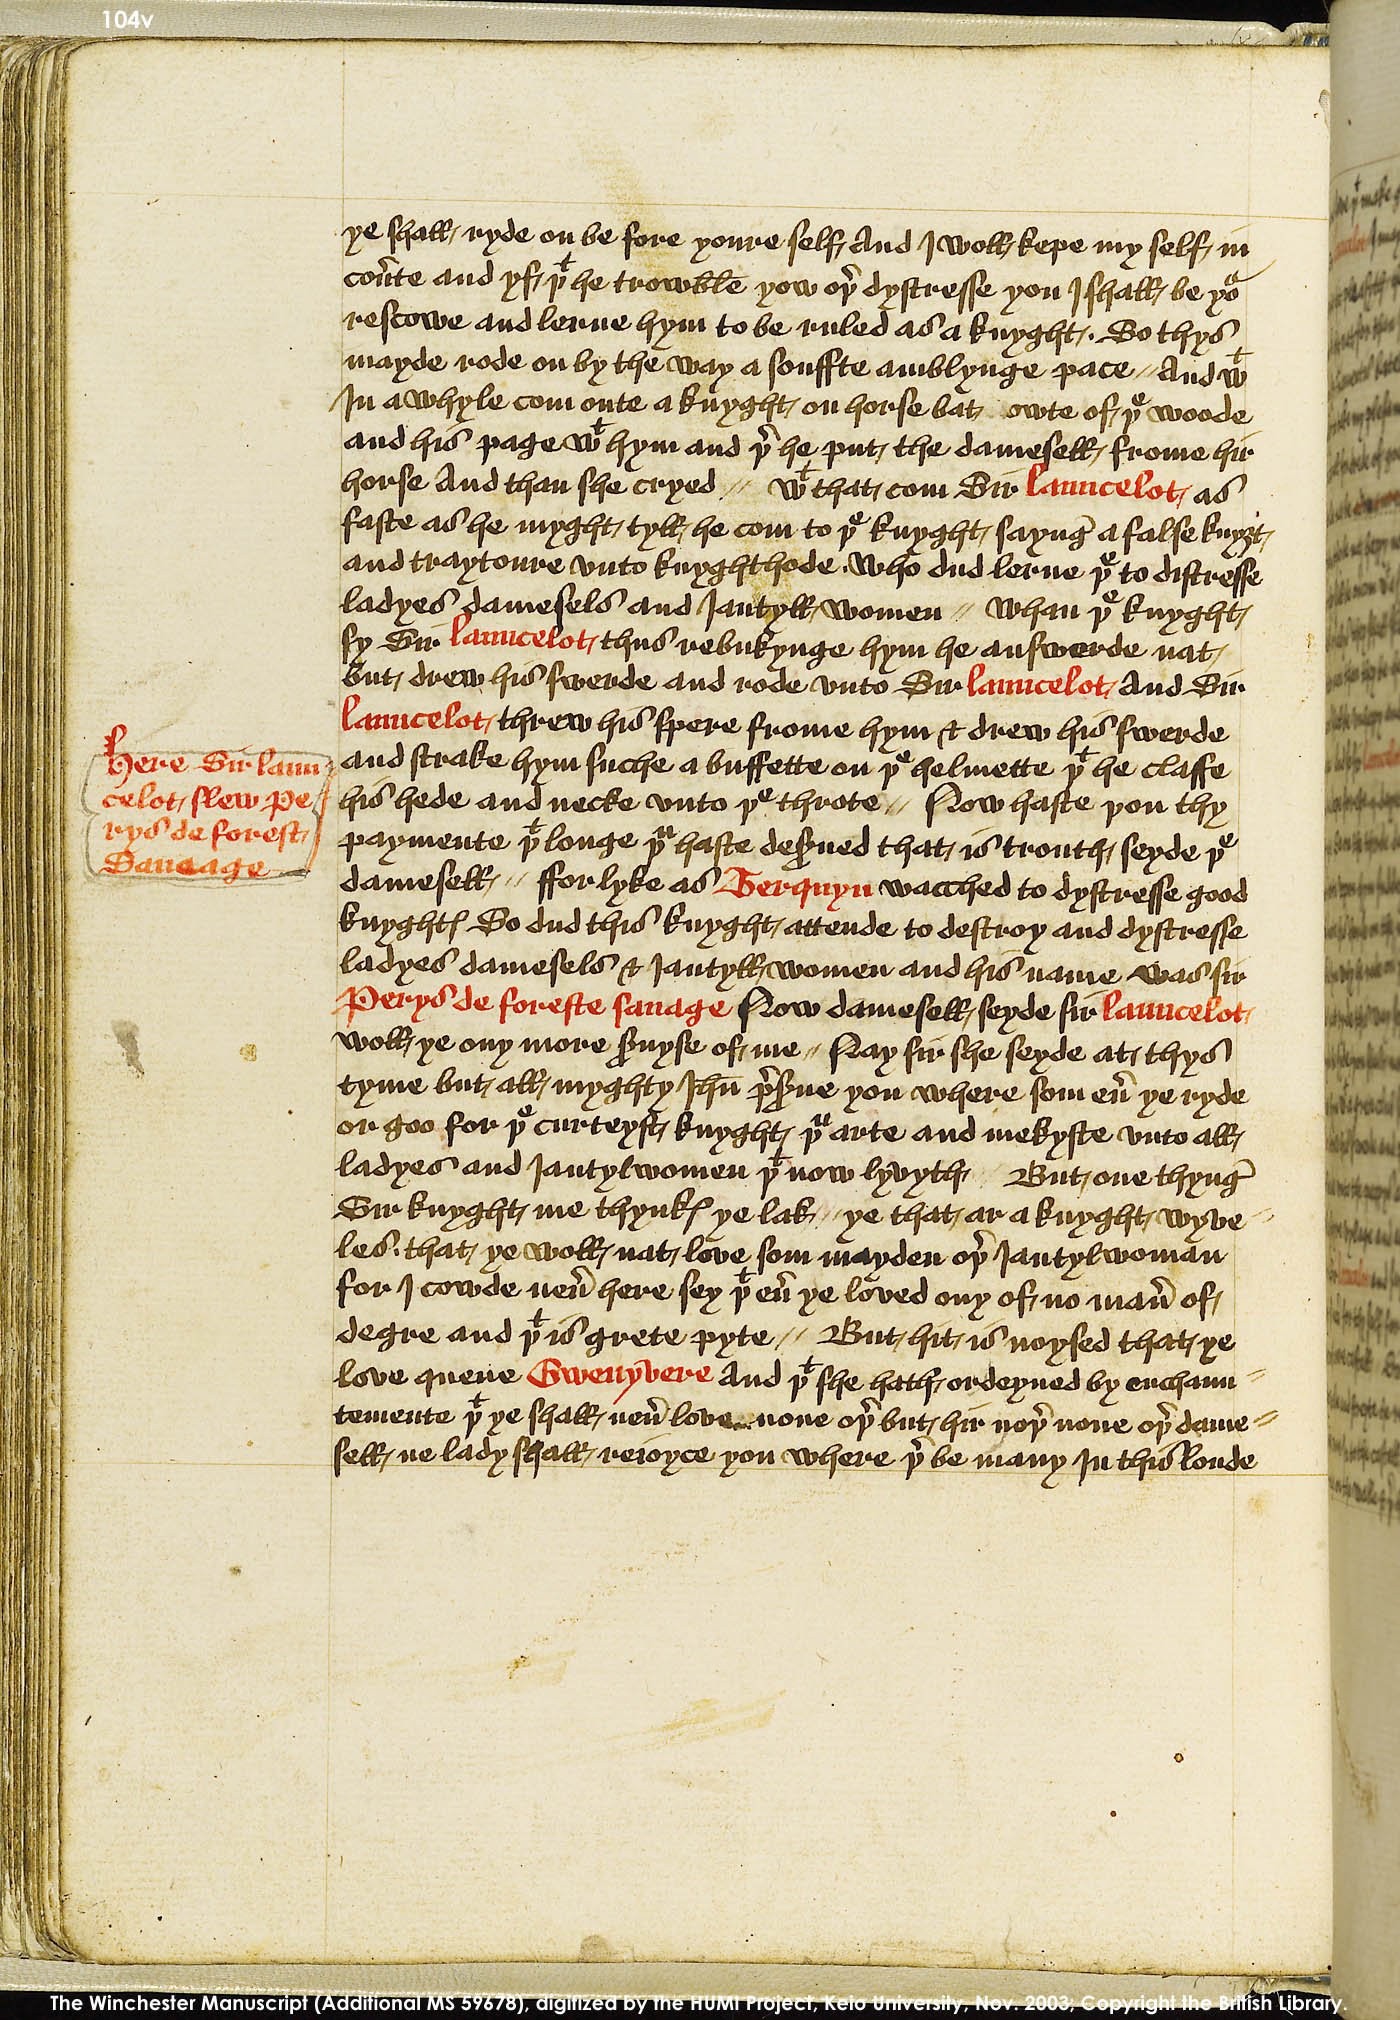 104v
ye shall ryde on be fore youre self And I woll kepe my self in
cov̾te and yf þᵗ he trowble yow oþ̾ dystresse you I shall be yoᵒ
rescowe and lerne hym to be ruled as a knyght · So thys
mayde rode on by the way a souffte amblynge pace // And wᵗ
In a whyle com oute a knyght on horse bak owte of þᵉ woode
and his page wᵗ hym and þ̾ he put the damesell frome hir
horse And than she cryed // wᵗ that com Sir launcelot as
faste as he myght tyll he com to þᵉ knyght sayng̾ a false knyȝt
and traytoure vnto knyghthode · who dud lerne þᵉ to distresse
ladyes damesels and Jantyll women // whan þᵉ knyght
sy Sir launcelot thus rebukynge hym he answerde nat
but drew his swerde and rode vnto Sir launcelot And Sir
launcelot threw his spere frome hym & drew his swerde
and strake hym suche a buffette on þᵉ helmette þᵗ he claffe
his hede and necke vnto þᵉ throte // Now haste you thy
paymente þᵗ longe þᵘ haste deserued that is trouth seyde þᵉ
damesell // ffor lyke as Terquyn wacched to dystresse good
knyghtꝭ So dud this knyght attende to destroy and dystresse
ladyes damesels & Jantyll women and his name was sir
Perys de foreste savage Now damesell seyde sir launcelot
woll ye ony more s̾uyse of me // Nay sir she seyde at thys
tyme but all myghty Jhū p̾s̾ue you where som eu̾ ye ryde
or goo for þᵉ curteyst knyght þᵘ arte and mekyste vnto all
ladyes and Jantylwomen þᵗ now lyvyth // But one thyng̾
Sir knyght me thynkꝭ ye lak // ye that ar a knyght wyve =
les · that ye woll nat love som mayden oþ̾ Jantylwoman
for I cowde neu̾ here sey þᵗ eu̾ ye loved ony of no man̾ of
degre and þᵗ is grete pyte // But hit is noysed that ye
love quene Gwenyvere And þᵗ she hath ordeyned by enchaun =
temente þᵗ ye shall neu̾ love none oþ̾ but hir noþ̾ none oþ̾ dame =
sell ne lady shall reioyce you where þ̾ be many In this londe
Here Sir laun
celot slew Pe
rys de forest
Savage
The Winchester Manuscript (Additional MS 59678), digitized by the HUMI Project, Keio University, Nov. 2003; Copyright the British Library.